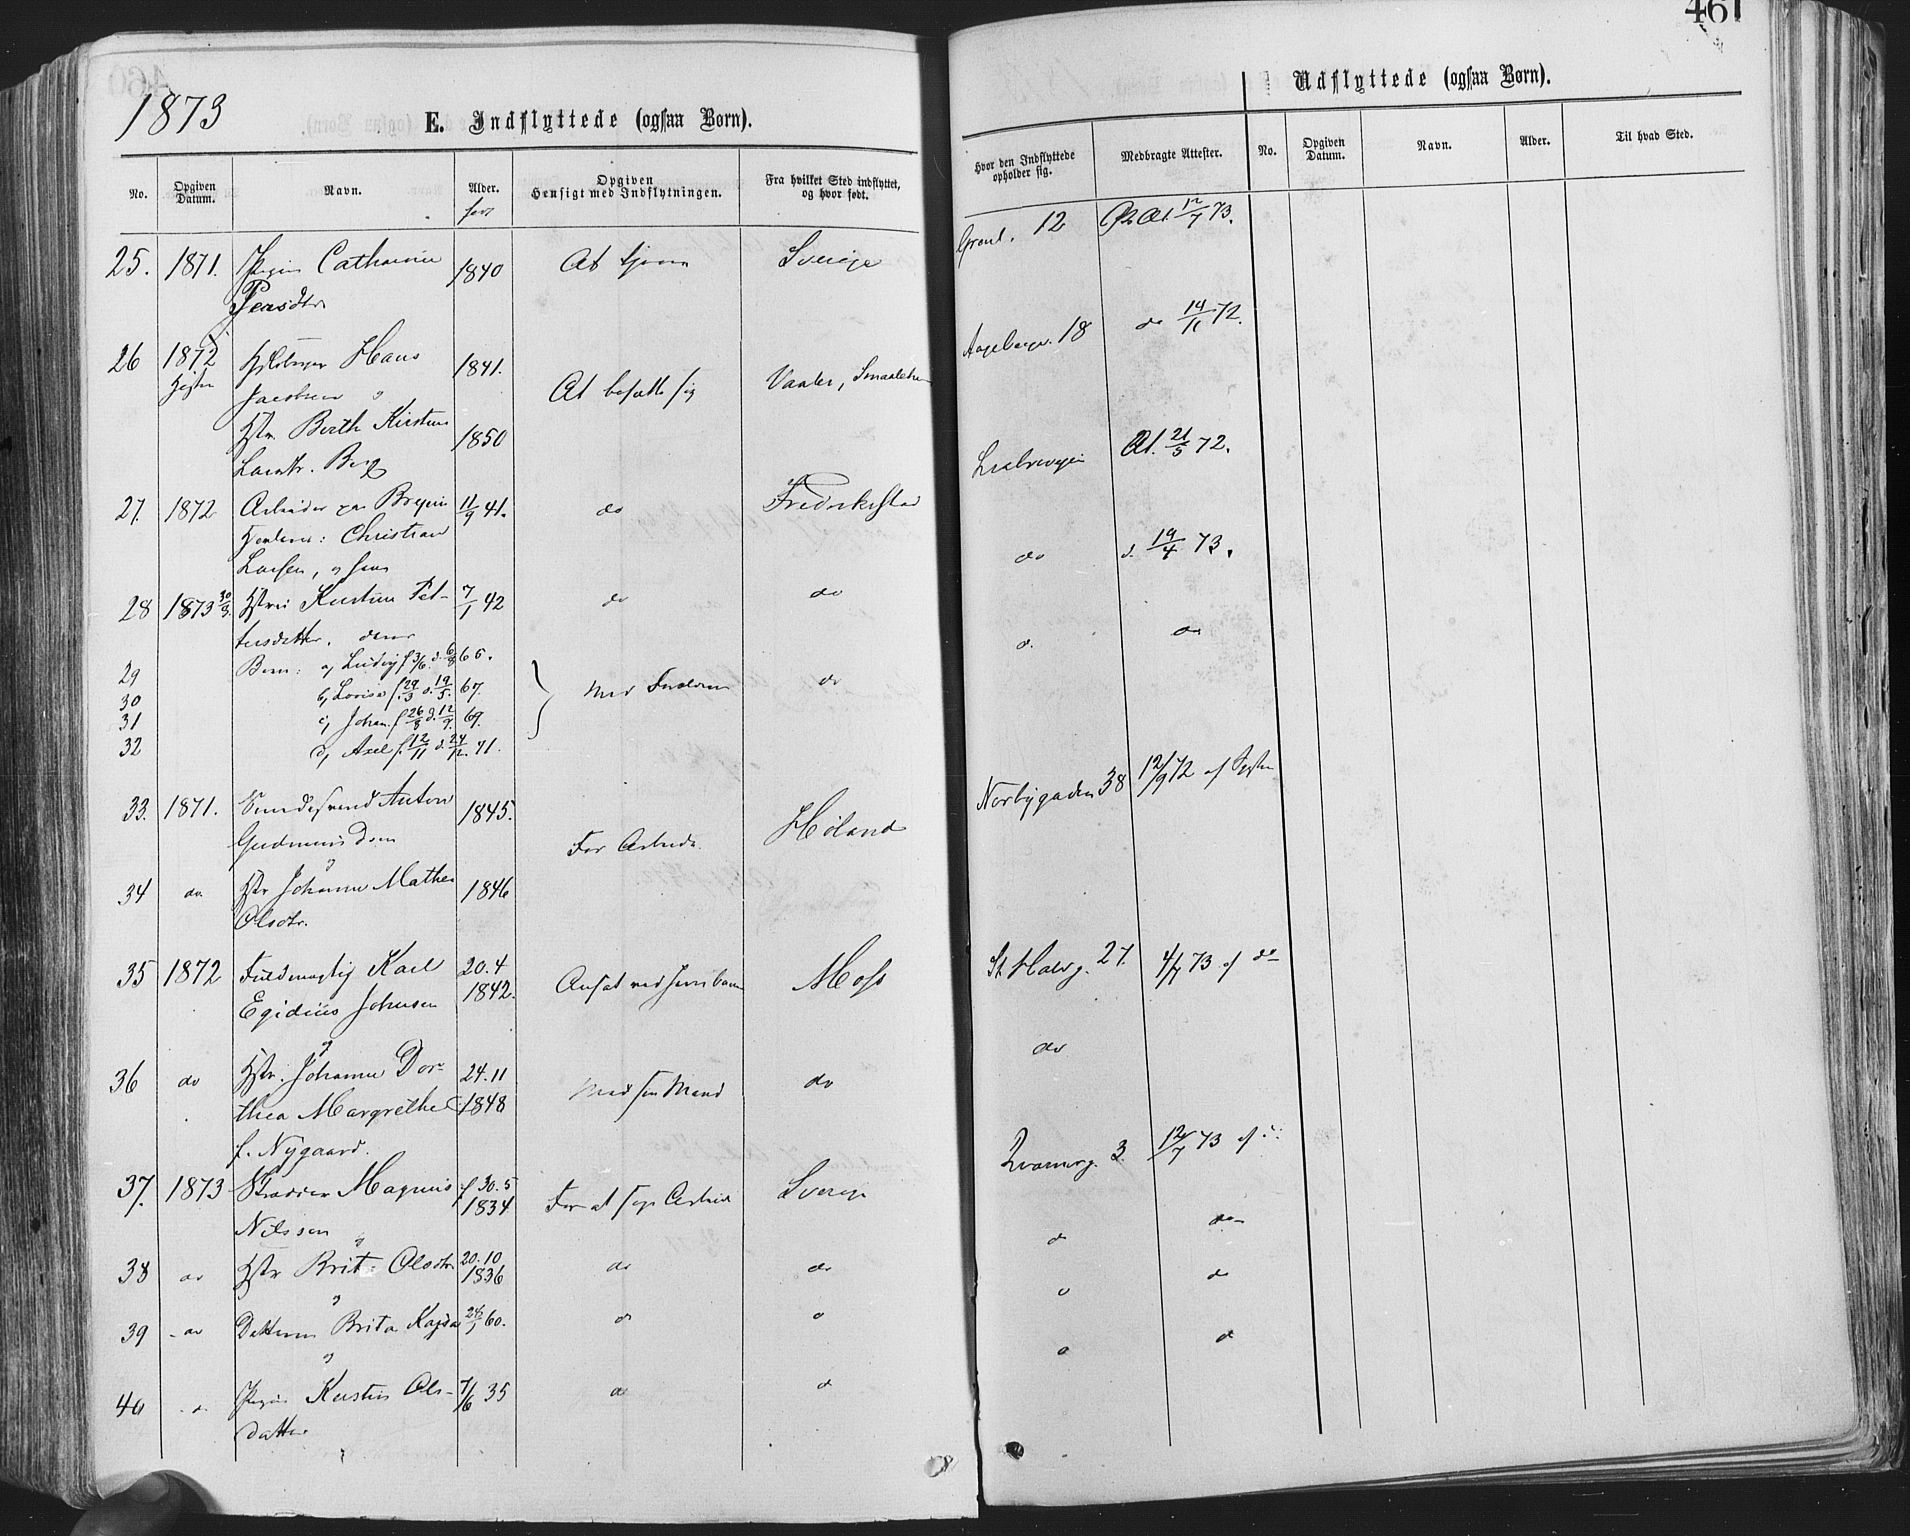 1873
E. Indflyttede (ogsaa Børn).
No.
Opgiven Datum.
Navn.
Alder.
Opgiven Hensigt med Indflytningen.
Fra hvilket Sted indflyttet, og hvor født.
25. 1871. Pigen Catharine 1840 At tjene Sverige
Persdtr
26 1872 Hans 1841. At bosætte sig Vaaler, Smaalene
Høsten Jacobsen og
Hstr. Berth Kirstine 1850
Larsdtr. Berg
27. 1872 Arbeider Bryn 11/9 41. do Fredrikstad
Christian
Larsen, og hans
28 1873 30/3. Hstru Kirstine Pet- 7/1 42 do do
tersdatter. deres
29 Børn: a, Ludvig f 3/6. d. 6/8 65.
30 b, Lovise f. 29/3 d. 19/5. 67. med Forældrene do
31 c, Johan. f 26/8 d. 12/9. 69.
32 d, Axel f. 12/11 d. 24/12. 71.
33. 1871. Anton 1845. For Arbeide. Høland
Gudmundsen
og
34 do. Hstr Johanne Mathea 1846
Olsdtr.
35 1872 Fuldmægtig Karl 20.4 Ansat ved Jernbanen Moss
Egidius Johnsen 1842.
og
36 do Hstr. Johanne Dor- 24.11 med sin Mand do
thea Margrethe 1848
f. Nygaard.
37. 1873 Skrædder Magnus f 30.5 For at søge Arbeide Sverige
Nilssen og 1834
38 do Hstr Brita Olsdtr 20.10 do do
og 1836
39 - do Datteren Brita Kajsa 60. do do
og
40 - d. Pigen Kirstin Ols- 7/6 35 do d
datter
461
Udflyttede (ogsaa Børn).
Hvor den Indflyttede opholder sig.
Medbragte Attester.
No.
Opgiven Datum.
Navn.
Alder.
Til hvad Sted.
Grønl. 12 12/7 73.
Aageberg. 18 do 14/11 72.
At. 21/5 72.
do d. 19/4 73.
d. do
Norbygaden 38 12/9 72 af Præsten
St Halvg. 27. 4/7 73 af do
do
Qvarnerg. 3. 12/7 73 af
d do
d
d